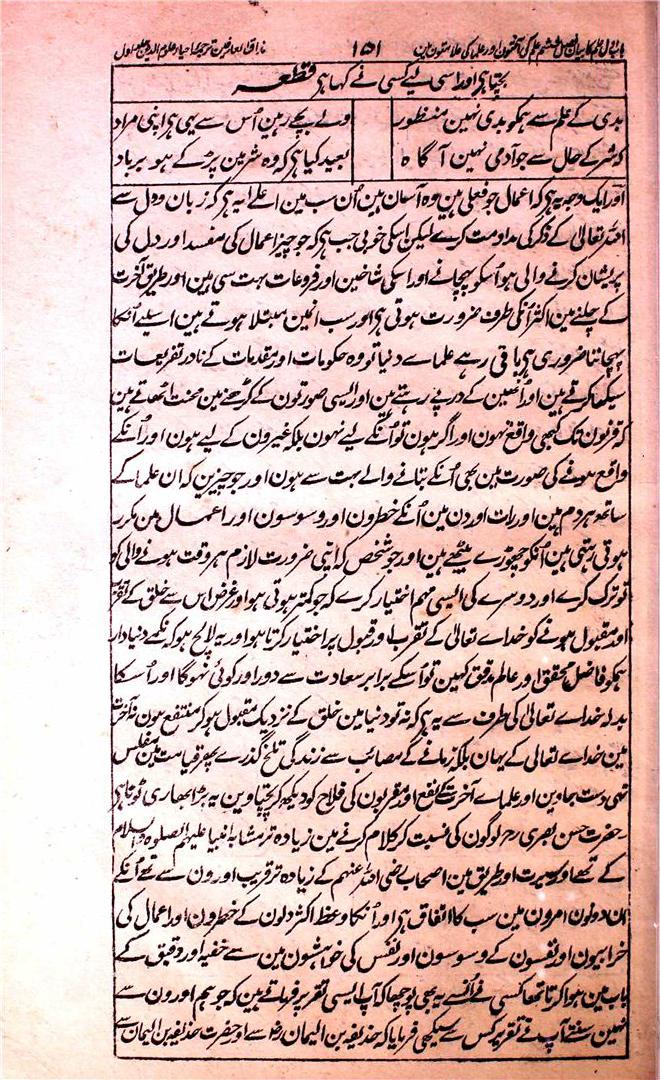 باب اول علم کا بیان فصل ششم علم کی آفتون اور علما کی علامتون مین ۱۵۱ مذاق العارفین ترجمہ احیاء علوم الدین جلد اول
بچتا ہر اور اسی لیے کسی نے کہا ہر قطعہ
بدی کے علم سے ہمکو بدی نہین منظور ولے بچے رہین اُس سے یہی ہر اپنی مراد
کہ شر کے حال سے جو آدمی نہین آگاہ بعید کیا ہر کہ وہ شر مین پڑ کے ہو برباد
اور ایک وجہ یہ ہر کہ اعمال جو فعلی ہین وہ آسان ہین اُن سب مین اعلے یہ ہر کہ زبان و دل سے
اللہ تعالیٰ کے ذکر کی مداومت کرے لیکن اسکی خوبی جب ہر کہ جو چیز اعمال کی مفسد اور دل کی
پریشان کرنے والی ہو اُسکو پہچانے اور اسکی شاخین اور فروعات بہت سی ہین اور طریق آخرت
کے چلنے مین اکثر اُنکی طرف ضرورت ہوتی ہر اور سب انمین مبتلا ہوتے ہین اسلیے اُنکا
پہچاننا ضروری ہر باقی رہے علماے دنیا تو وہ حکومات اور مقدمات کے نادر تفریعات
سیکھا کرتے ہین اور اُنھین کے درپے رہتے ہین اور ایسی صورتون کے گڑھنے مین محنت اٹھاتے ہین
کہ قرنون تک کبھی واقع نہون اور اگر ہون تو اُنکے لیے نہون بلکہ غیرون کے لیے ہون اور اُنکے
واقع ہونے کی صورت مین بھی اُنکے بتانے والے بہت سے ہون اور جو چیزین کہ ان علما کے
ساتھ ہر دم ہین اور رات اور دن مین اُنکے خطرون اور وسوسون اور اعمال مین مکرر
ہوتی رہتی ہین اُنکو چھوڑے بیٹھے ہین اور جو شخص کہ اپنی ضرورت لازم ہر وقت ہونے والی کو
تو ترک کرے اور دوسرے کی ایسی مہم اختیار کرے کہ جو کمتر ہوتی ہو اور غرض اس سے خلق کے تقرب
اور مقبول ہونے کو خداے تعالیٰ کے تقرب اور قبول پر اختیار کرتا ہو اور یہ لالچ ہو کہ نکمے دنیا دار
ہمکو فاضل محقق اور عالم مدقق کہین تو اُسکے برابر سعادت سے دور اور کوئی نہوگا اور اُسکا
بدلہ خداے تعالیٰ کی طرف سے یہ ہر کہ نہ تو دنیا مین خلق کے نزدیک مقبول ہو کر منتفع ہون نہ آخرت
مین خداے تعالیٰ کے یہان بلکہ زمانے کے مصائب سے زندگی تلخ گذرے پھر قیامت مین مفلس
تہی دست جاوین اور علماے آخرت کے نفع اور مقربون کی فلاح کو دیکھ کر پچتاوین یہ بڑا بھاری ٹوٹا ہر
حضرت حسن بصری رح لوگون کی نسبت کر کلام کرنے مین زیادہ تر مشابہ انبیا علیہم الصلوٰۃ والسلام
کے تھے اور سیرت اور طریق مین اصحاب رضی اللہ عنہم کے زیادہ تر قریب اورون سے تھے اُنکے
ان دونون امرون مین سب کا اتفاق ہر اور اُنکا وعظ اکثر دلون کے خطرون اور اعمال کی
خرابیون اور نفسون کے وسوسون اور نفس کی خواہشون مین سے خفیہ اور دقیق کے
باب مین ہوا کرتا تھا کسی نے اُنسے یہ بھی پوچھا کہ آپ ایسی تقریر فرماتے ہین کہ جو ہم اورون سے
نہین سنتے آپ نے تقریر کس سے سیکھی فرمایا کہ حذیفہ بن الیمان رض سے اور حضرت حذیفہ بن الیمان سے